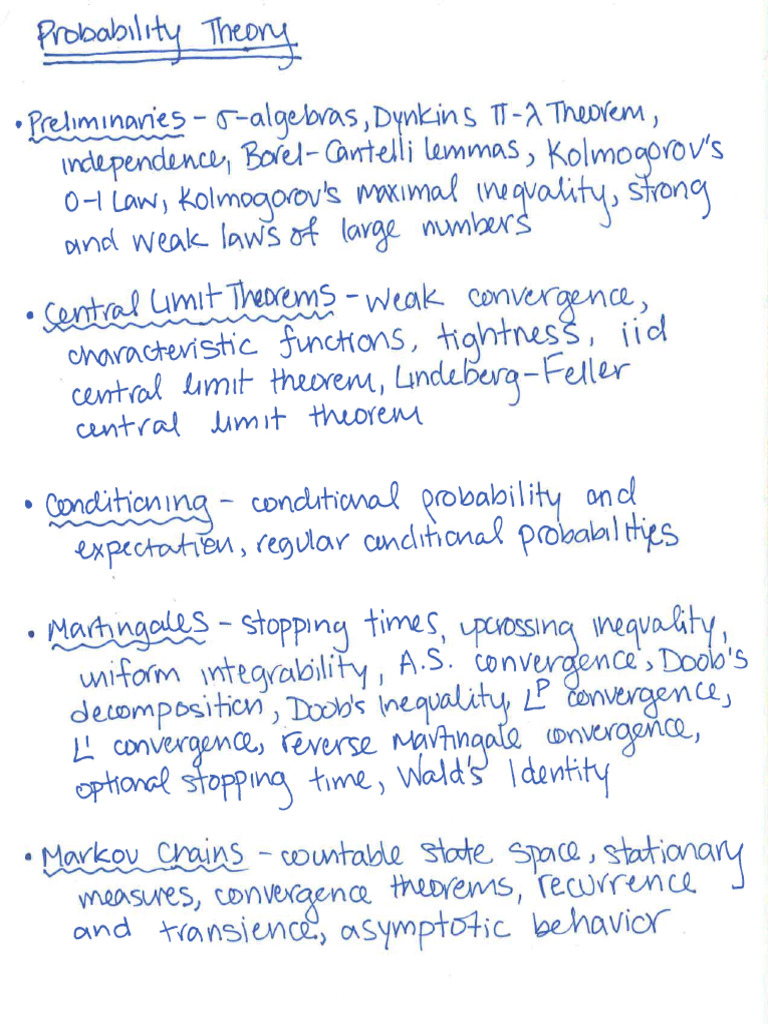 Probability Theory
• Preliminaries - σ-algebras, Dynkins π-λ Theorem,
independence, Borel-Cantelli lemmas, Kolmogorov's
0-1 Law, Kolmogorov's maximal inequality, strong
and weak laws of large numbers
• Central Limit Theorems - weak convergence,
characteristic functions, tightness, iid
central limit theorem, Lindeberg-Feller
central limit theorem
• Conditioning - conditional probability and
expectation, regular conditional probabilities
• Martingales - stopping times, upcrossing inequality,
uniform integrability, A.S. convergence, Doob's
decomposition, Doob's inequality, Lᵖ convergence,
L¹ convergence, reverse Martingale convergence,
optional stopping time, Wald's Identity
• Markov Chains - countable state space, stationary
measures, convergence theorems, recurrence
and transience, asymptotic behavior